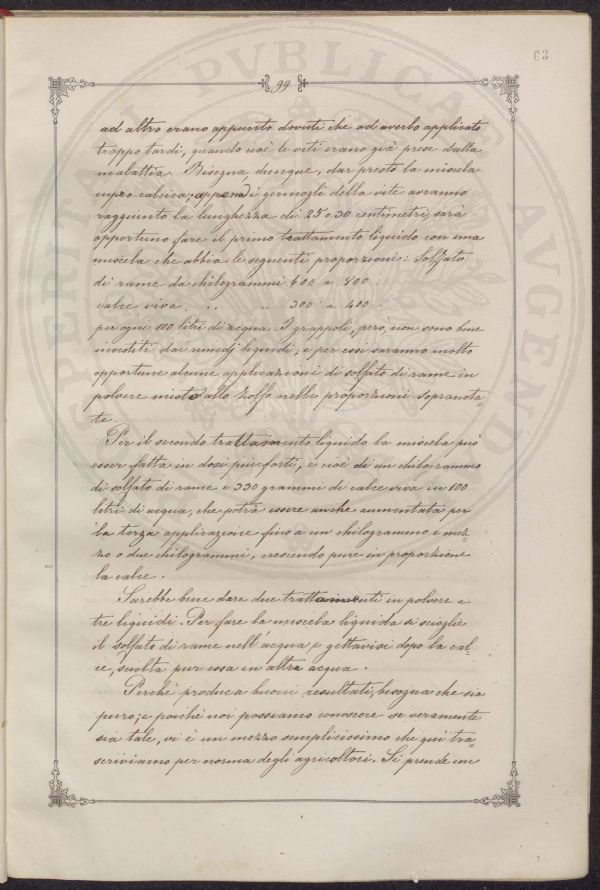 63
99
ad altro erano appunto dovuti che ad averlo applicato
troppo tardi, quando cioè le viti erano già prese dalla
malattia. Bisogna, dunque, dar presto la miscela
cupro calcica; appena i germogli della vite avranno
raggiunto la lunghezza di 25 o 30 centimetri, sarà
opportuno fare il primo trattamento liquido con una
miscela che abbia le seguenti proporzioni: Solfato
di rame da chilogrammi 600 a 800.
calce viva " " 300 a 400
per ogni 100 litri di acqua. I grappoli, però, non sono bene
investiti dai rimedj liquidi, e per essi saranno molto
opportune alcune applicazioni di solfato di rame in
polvere misto allo zolfo nelle proporzioni sopranota=
te.
Per il secondo trattamento liquido la miscela può
esser fatta in dosi più forti, e cioè di un chilogrammo
di solfato di rame e 330 grammi di calce viva in 100
litri di acqua, che potrà essere anche aumentata per
la terza applicazione fino a un chilogrammo e mez=
zo o due chilogrammi, crescendo pure in proporzione
la calce.
Sarebbe bene dare due trattamenti in polvere e
tre liquidi. Per fare la miscela liquida si scioglie
il solfato di rame nell'acqua, e gettavisi dopo la cal=
ce, sciolta pur essa in altra acqua.
Perchè produca buoni resultati, bisogna che sia
puro; e poichè noi possiamo conoscere se veramente
sia tale, vi è un mezzo semplicissimo che qui tra=
scriviamo per norma degli agricoltori. Si prende un
PVBLICAE
AVGENDAE